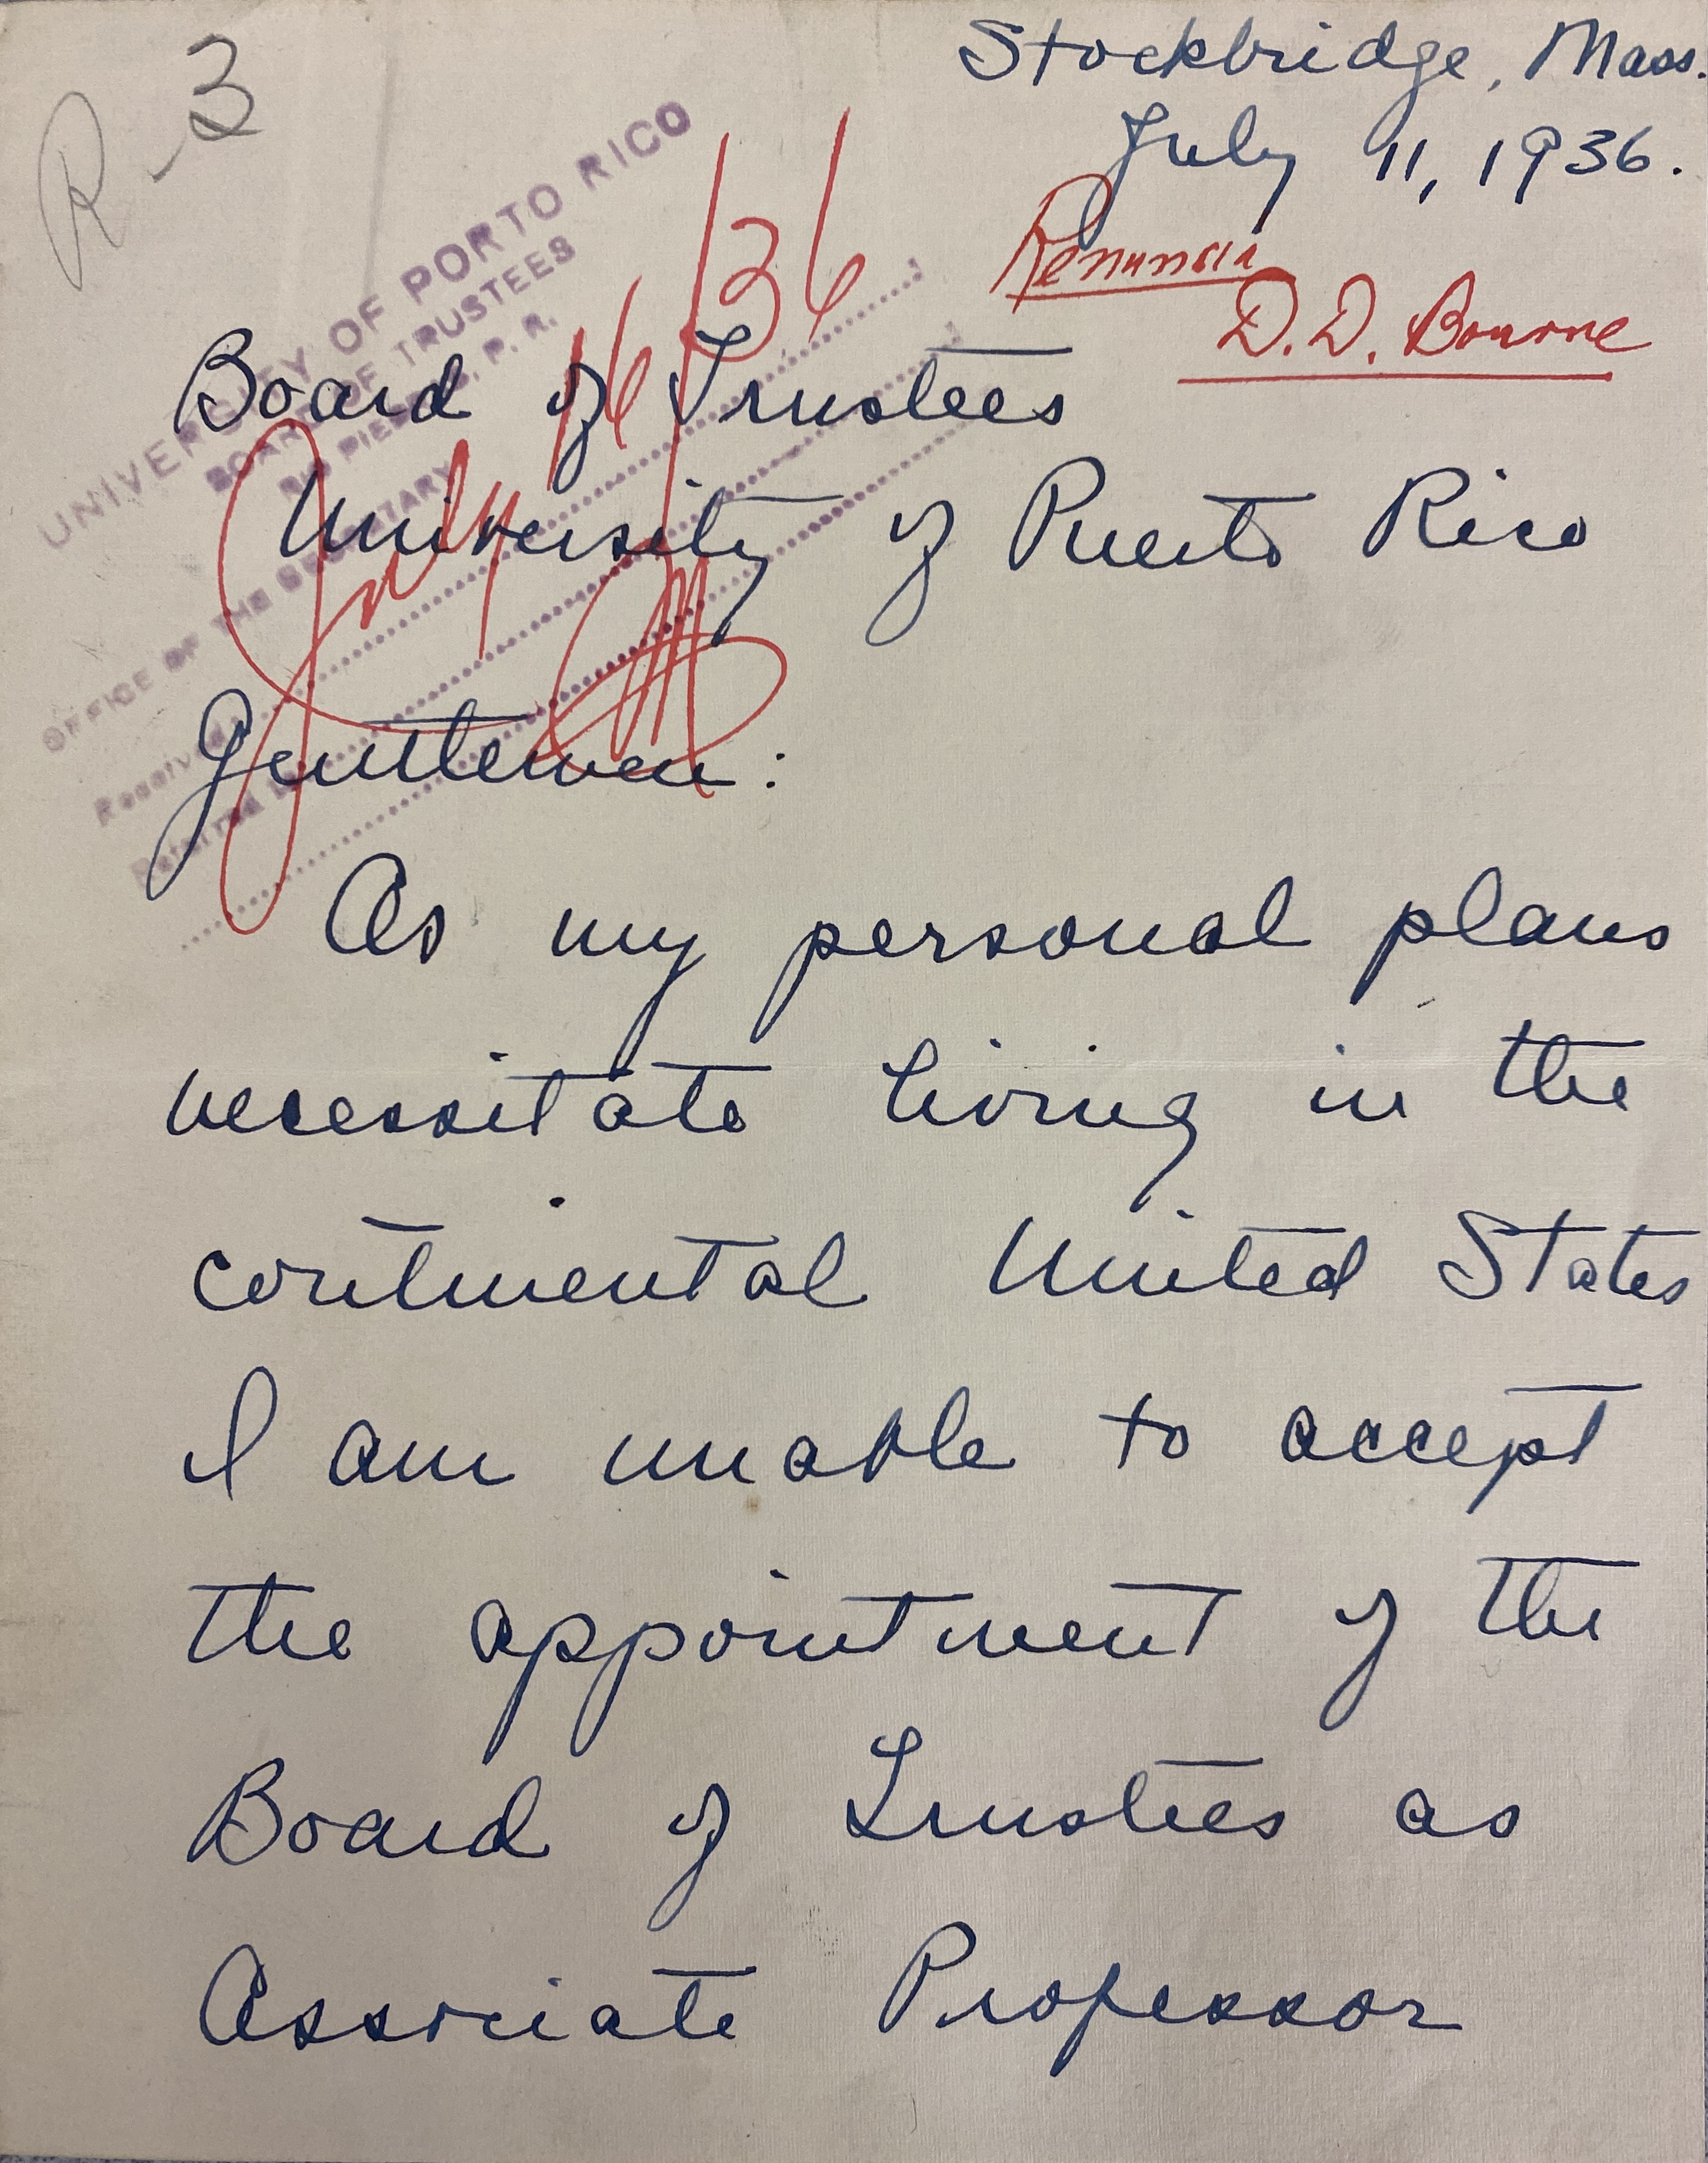 R-3
Stockbridge, Mass.
July 11, 1936.
Renuncia
D. D. Bourne
UNIVERSITY OF PORTO RICO
BOARD OF TRUSTEES
RIO PIEDRAS, P. R.
OFFICE OF THE SECRETARY
Received
Referred
July 16/36
Board of Trustees
University of Puerto Rico
Gentlemen:
As my personal plans
necessitate living in the
continental United States
I am unable to accept
the appointment of the
Board of Trustees as
Associate Professor